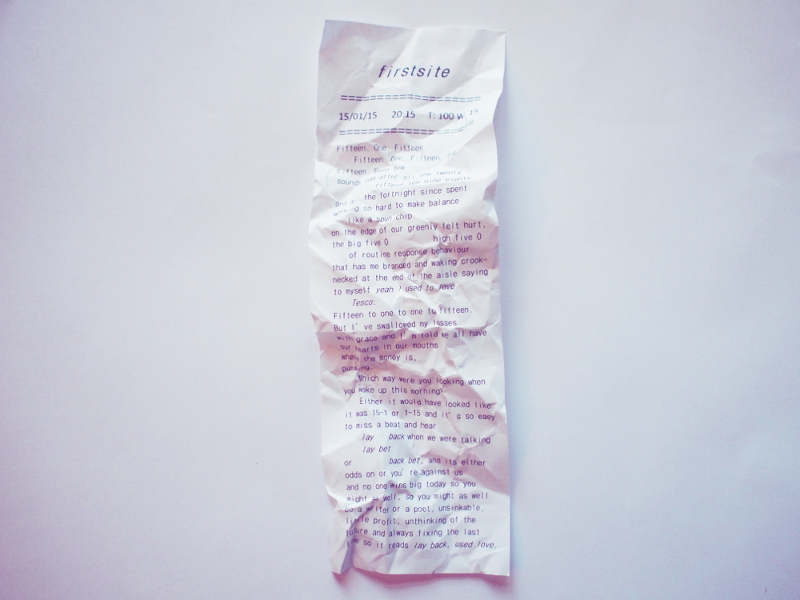 firstsite
======================
15/01/15 20:15 T: 100 W: 15
======================
Fifteen. One. Fifteen
Fifteen. One. Fifteen.
Fifteen. Even now
sounds
the fortnight since spent
so hard to make balance
like a spun chip
on the edge of our greenly felt hurt,
the big five 0 high five 0
of routine response behaviour
that has me branded and waking crook-
necked at the end of the aisle saying
to myself yeah I used to love
Tesco.
Fifteen to one to one to fifteen.
But I've swallowed my losses
with grace and I'm told we all have
our hearts in our mouths
when the money is,
pursing.
Which way were you looking when
you woke up this morning?
Either it would have looked like
it was 15-1 or 1-15 and it's so easy
to miss a beat and hear
lay back when we were talking
lay bet
or back bet, and its either
odds on or you're against us
and no one wins big today so you
might as well, so you might as well
be a writer or a poet, unsinkable,
little profit, unthinking of the
future and always fixing the last
line so it reads lay back, used love.